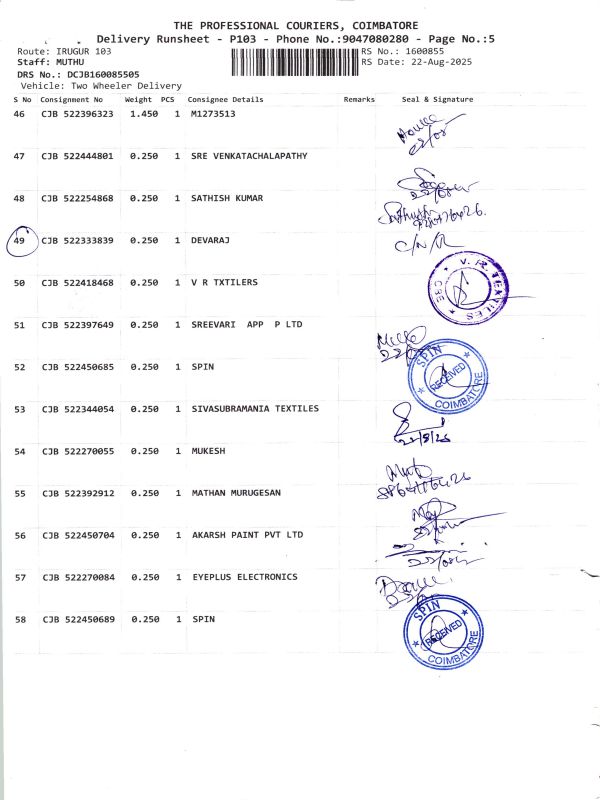 THE PROFESSIONAL COURIERS, COIMBATORE
Delivery Runsheet - P103 - Phone No.:9047080280 - Page No.:5
Route: IRUGUR 103 RS No.: 1600855
Staff: MUTHU RS Date: 22-Aug-2025
DRS No.: DCJB160085505
Vehicle: Two Wheeler Delivery
S No Consignment No Weight PCS Consignee Details Remarks Seal & Signature
46 CJB 522396323 1.450 1 M1273513
47 CJB 522444801 0.250 1 SRE VENKATACHALAPATHY
48 CJB 522254868 0.250 1 SATHISH KUMAR
49 CJB 522333839 0.250 1 DEVARAJ
50 CJB 522418468 0.250 1 V R TXTILERS
V. R. TEXTILES CBE
51 CJB 522397649 0.250 1 SREEVARI APP P LTD
52 CJB 522450685 0.250 1 SPIN
SPIN RECEIVED COIMBATORE
53 CJB 522344054 0.250 1 SIVASUBRAMANIA TEXTILES
54 CJB 522270055 0.250 1 MUKESH
55 CJB 522392912 0.250 1 MATHAN MURUGESAN
56 CJB 522450704 0.250 1 AKARSH PAINT PVT LTD
57 CJB 522270084 0.250 1 EYEPLUS ELECTRONICS
58 CJB 522450689 0.250 1 SPIN
SPIN RECEIVED COIMBATORE